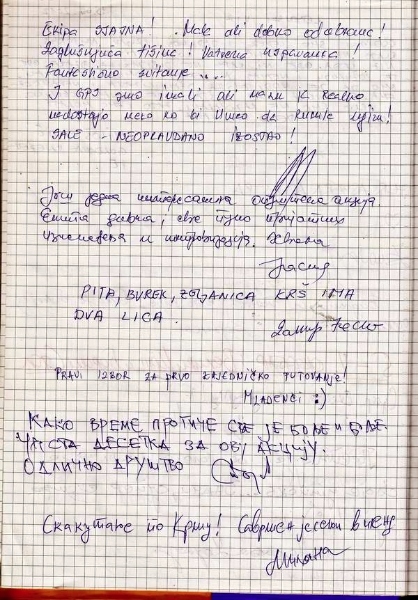 Ekipa SJAJNA! Malo ali dobro odabrano!
Zaglušujuća tišina! Vatrena
Fantastično svitanje....
I GPS smo imali ali nam je Realno
nedostajo neko ko bi Umeo da Rukuje njim!
SALE - NEOPRAVDANO IZOSTAO!
Још једна интересантна акција.
Екипа добра, све пуно пријатних
изненађења и импровизација. Хвала
PITA, BUREK, ZELJANICA KRŠ IMA
DVA LICA.
PRAVI IZBOR ZA PRVO ZAJEDNIČKO PUTOVANJE!
MLADENCI :)
КАКО ВРЕМЕ ПРОТИЧЕ СВЕ ЈЕ БОЉЕ И БОЉЕ.
ЧИСТА ДЕСЕТКА ЗА ОВУ АКЦИЈУ.
ОДЛИЧНО ДРУШТВО
Скакутање по Кршу! Савршен јесењи викенд
Милана